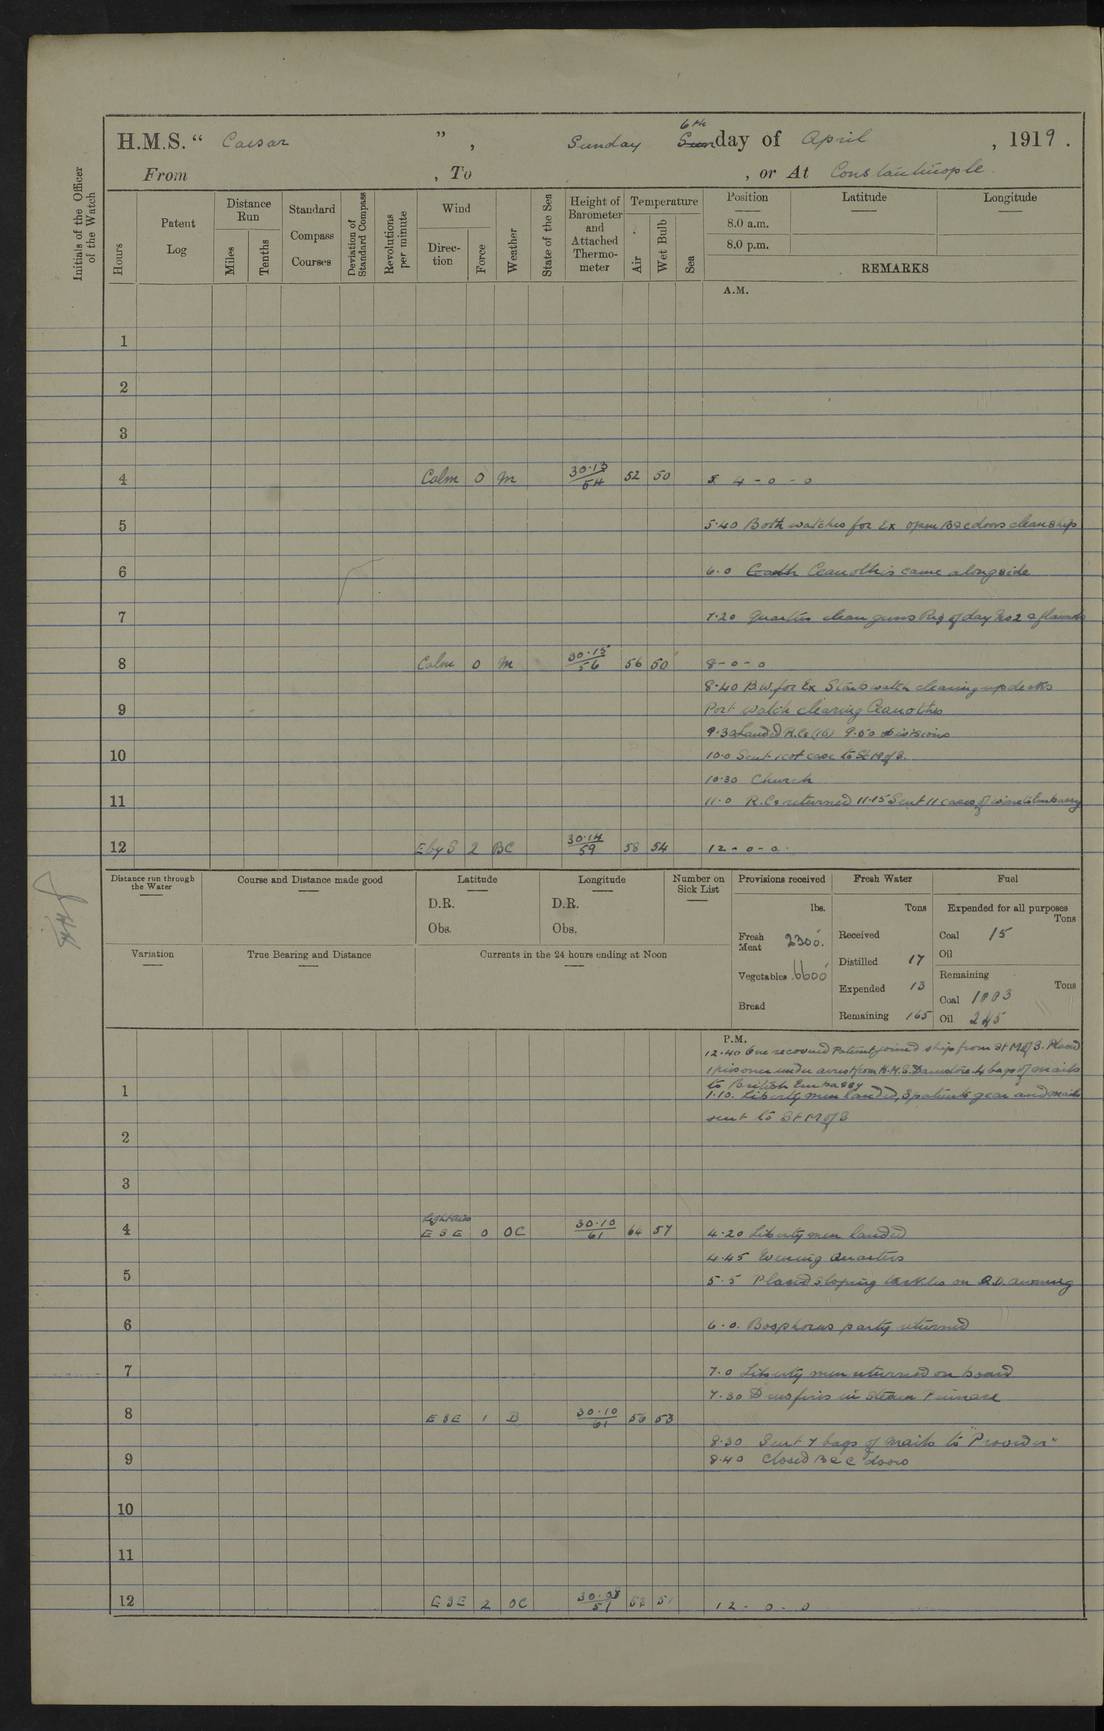 6th
H.M.S. “ Caesar ” , Sunday Sunday of April , 1919 .
From , To , or At Constantinople .
Initials of the Officer of the Watch
Hours
Patent Log
Distance Run
Miles
Tenths
Standard Compass Courses
Deviation of Standard Compass
Revolutions per minute
Wind
Direction
Force
Weather
State of the Sea
Height of Barometer and Attached Thermometer
Temperature
Air
Wet Bulb
Sea
Position
8.0 a.m.
8.0 p.m.
Latitude
Longitude
REMARKS
A.M.
1
2
3
4 Calm 0 M 30.13/54 52 50 4 - 0 - 0
5 5.40 Both watches for Ex open B&C doors clean ship
6 6.0 Ceanothis came alongside
7 7.20 Quarters clean guns Rig of day No 2 & flannels
8 Calm 0 M 30.15/56 56 50 8 - 0 - 0
8.40 B.W. for Ex Starb watch clearing up decks
9 Port watch clearing Ceanothis
9.30 Landed R.Cs (16) 9.50 divisions
10 10.0 Sent 1 cot case to St M of B.
10.30 Church
11 11.0 R.Cs returned 11.15 Sent 11 cases of wine to Embassy
12 E by S 2 BC 30.14/59 58 54 12 - 0 - 0
Distance run through the Water
Course and Distance made good
Latitude
D.R.
Obs.
Longitude
D.R.
Obs.
Number on Sick List
Provisions received
lbs.
Fresh Meat 2300.
Vegetables 6600
Bread
Fresh Water
Tons
Received
Distilled 17
Expended 13
Remaining 165
Fuel
Expended for all purposes
Tons
Coal 15
Oil
Remaining
Tons
Coal 1003
Oil 245
Variation
True Bearing and Distance
Currents in the 24 hours ending at Noon
P.M.
12.40 One recovered Patient joined ship from St M of B. Placed
1 prisoner under arrest from H.M.S. 4 bags of mails
to British Embassy
1 1.10. Liberty men landed, 3 patients gear and mails
sent to St M of B
2
3
4 Light airs ESE 0 OC 30.10/61 64 57 4.20 Liberty men landed
4.45 Evening Quarters
5 5.5 Placed sloping tackles on Q.D. awning
6 6.0. Bosphorus party returned
7 7.0 Liberty men returned on board
7.30 Drew fires in Steam Pinnace
8 ESE 1 B 30.10/61 56 53
8.30 Sent 7 bags of mails to "Provider"
9 8.40 Closed B & C doors
10
11
12 ESE 2 OC 12 - 0 - 0